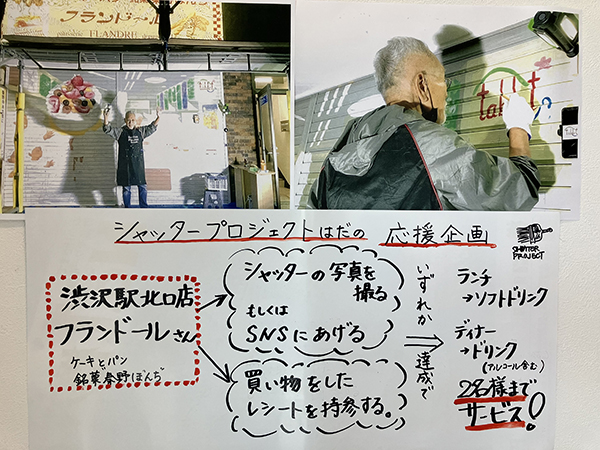 フランドール
FLANDRE
tallet
シャッタープロジェクトはだの 応援企画
SHUTTER
PROJECT
渋沢駅北口店
フランドールさん
ケーキとパン
銘菓"春野ぽんぢ"
シャッターの写真を
撮る
もしくは
SNSにあげる
買い物をした
レシートを持参する。
いずれか達成で
ランチ
→ソフトドリンク
ディナー
→ドリンク
(アルコール含む)
2名様まで
サービス!